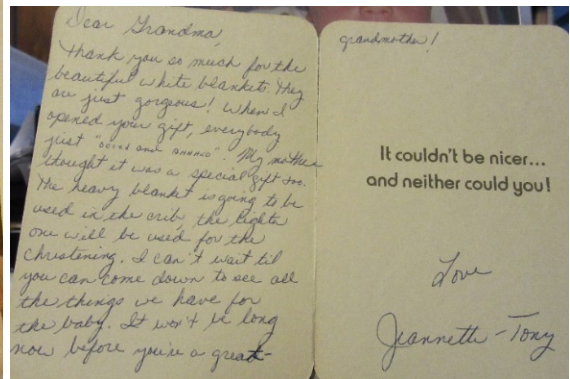 Dear Grandma,
Thank you so much for the
beautiful white blankets. They
are just gorgeous! When I
opened your gift, everybody
just "ooood and ahhhd". My mother
thought it was a special gift too.
The heavy blanket is going to be
used in the crib, the lighter
one will be used for the
christening. I can't wait til
you can come down to see all
the things we have for
the baby. It won't be long
now before you're a great-
grandmother!
It couldn't be nicer...
and neither could you!
Love
Jeannette - Tony